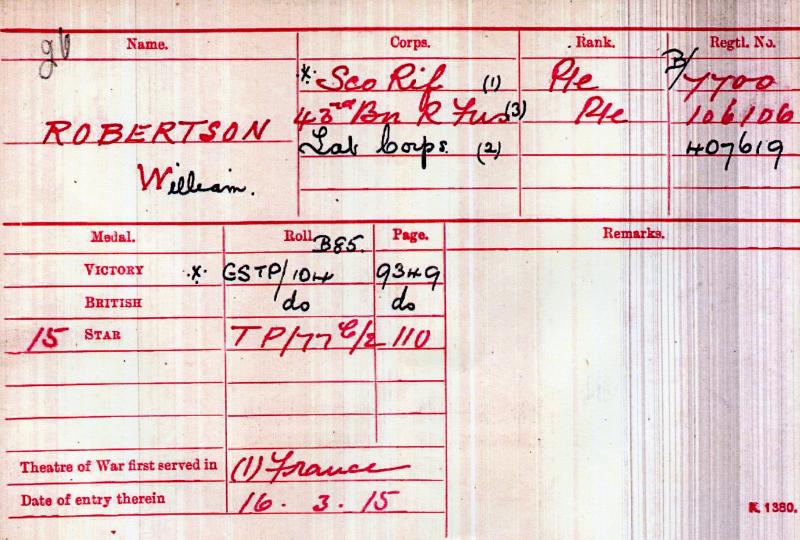 Name. Corps. Rank. Regtl. No.
* Sco Rif (1) Pte B/7700
ROBERTSON 43rd Bn R Fus (3) Pte 106106
William. Lab Corps. (2) 407619
Medal. Roll B85. Page. Remarks.
VICTORY * GSTP/104 9349
BRITISH do do
15 STAR TP/77 110
Theatre of War first served in (1) France
Date of entry therein 16. 3. 15
K. 1380.